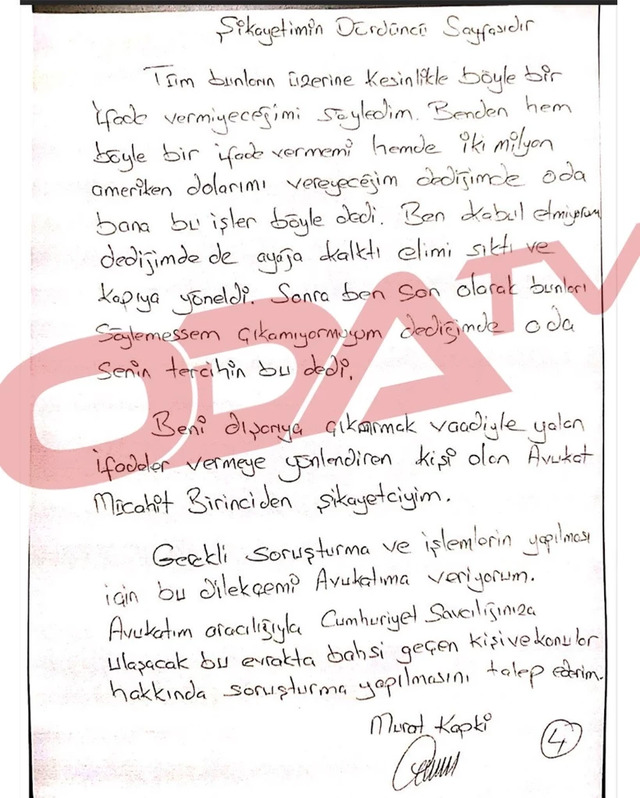 Şikayetimin Dördüncü Sayfasıdır
Tüm bunların üzerine kesinlikle böyle bir
ifade vermiyeceğimi söyledim. Benden hem
böyle bir ifade vermemi hemde iki milyon
ameriken dolarımı vereyeceğim dediğimde oda
bana bu işler böyle dedi. Ben kabul etmiyorum
dediğimde de ayağa kalktı elimi sıktı ve
kapıya yöneldi. Sonra ben son olarak bunları
Söylemessem çıkamıyormuyum dediğimde oda
senin tercihin bu dedi.
Beni dışarıya çıkarmak vaadiyle yalan
ifadeler vermeye yönlendiren kişi olan Avukat
Mücahit Birinciden şikayetciyim.
Gerekli soruşturma ve işlemlerin yapılması
için bu dilekçemi Avukatıma veriyorum.
Avukatım aracılığıyla Cumhuriyet Savcılığınıza
ulaşacak bu evrakta bahsi geçen kişi ve konular
hakkında soruşturma yapılmasını talep ederim.
Murat Kapki
4
ODATV